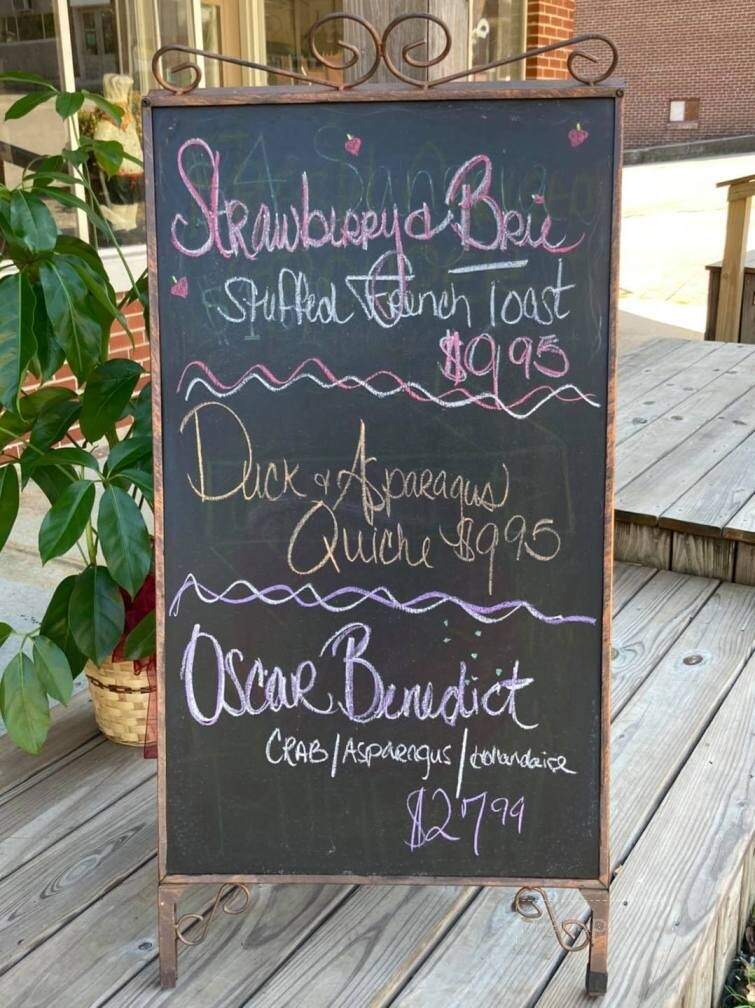 Strawberry & Brie
Stuffed French Toast
$9.95
Duck & Asparagus
Quiche $9.95
Oscar Benedict
CRAB/Asparagus/Hollandaise
$27.99